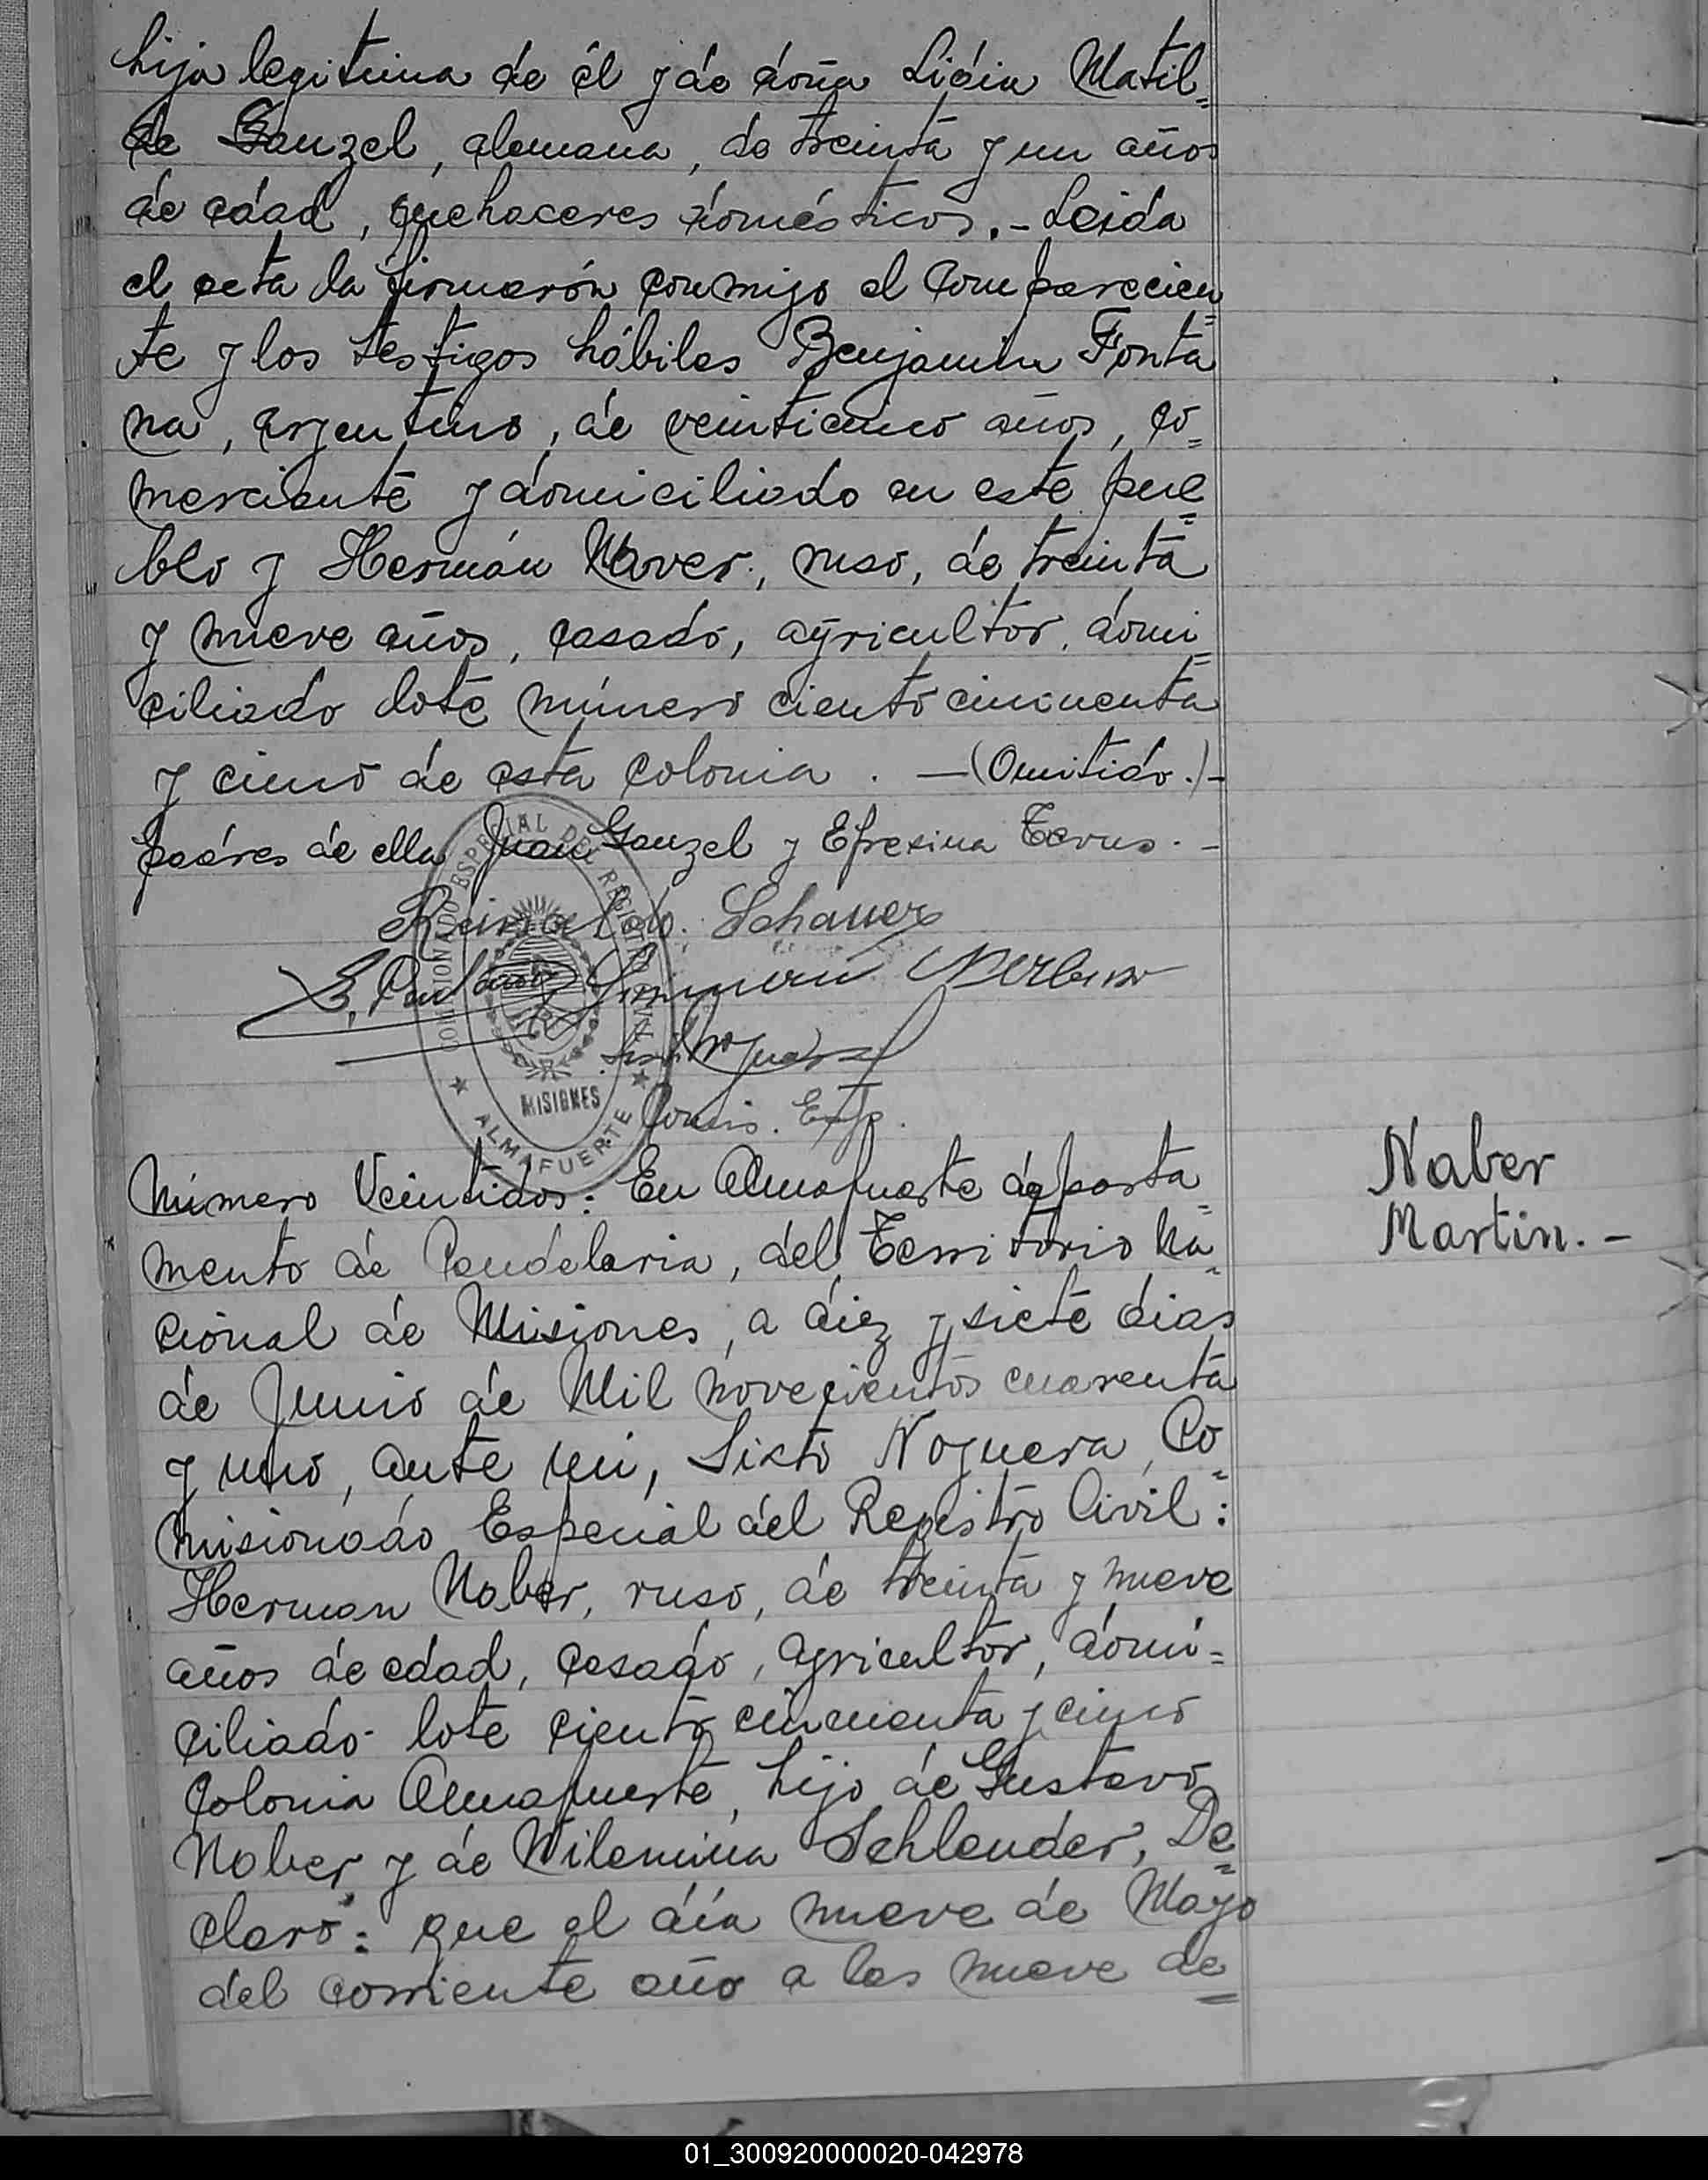 hija legitima de él y de doña Lidia Matil=
de Ganzel, alemana, de treinta y un años
de edad, quehaceres domésticos.- Leida
el acta la firmarón conmigo el comparecien=
te y los testigos hábiles Benjamin Fonta
na, argentino, de veinticinco años, co=
merciante y domiciliado en este pue=
blo y Hermán Naver, ruso, de treinta
y nueve años, casado, agricultor, domi=
ciliado lote número ciento cincuenta
y cinco de esta colonia. —(Omitido.)-
padres de ella Juan Ganzel y Efresina
Schauer
Comis. Esp.
COMISIONADO ESPECIAL DEL REGISTRO CIVIL
MISIONES
★ ALMAFUERTE ★
Número Veintidos: En Almafuerte departa=
mento de Candelaria, del Territorio Na=
cional de Misiones, a diez y siete dias
de Junio de Mil novecientos cuarenta
y uno, ante mi, Sixto Noguera, Co=
misionado Especial del Registro Civil:
Herman Naber, ruso, de treinta y nueve
años de edad, casado, agricultor, domi=
ciliado lote ciento cincuenta y cinco
Colonia Almafuerte, hijo de Gustavo
Naber y de Wilemina Schlender, De=
claró: que el día nueve de Mayo
del corriente año a las nueve de
Naber
Martin.-
01_300920000020-042978